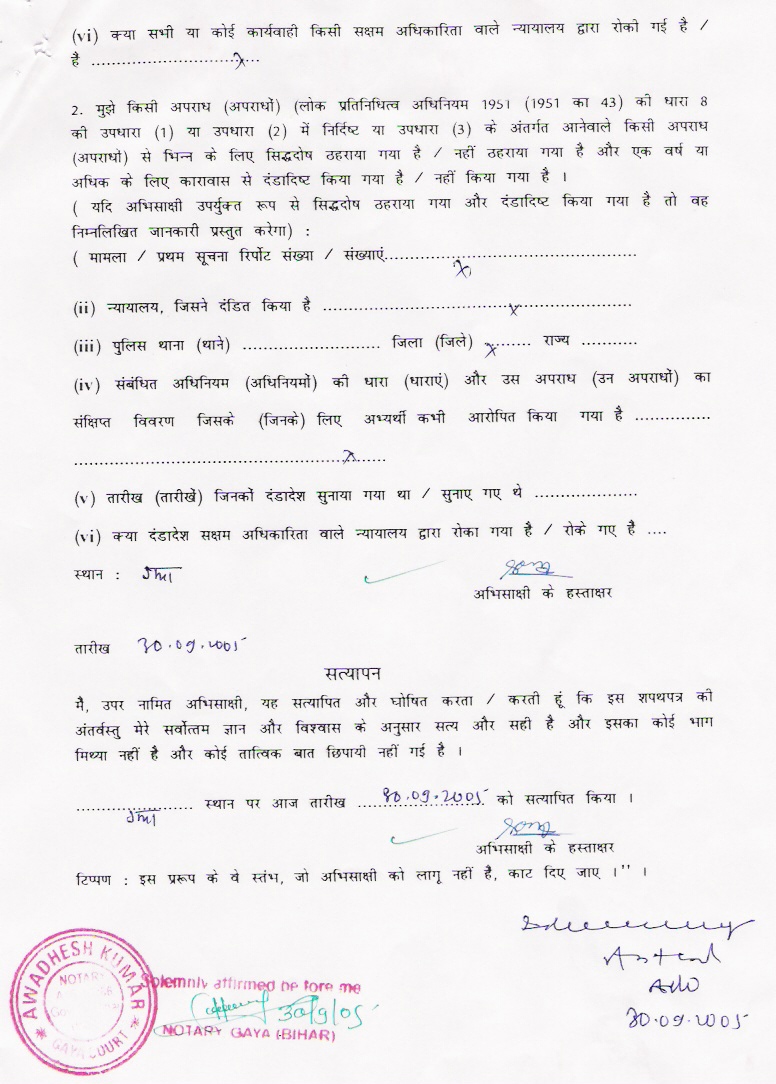 (vi) क्या सभी या कोई कार्यवाही किसी सक्षम अधिकारिता वाले न्यायालय द्वारा रोकी गई है /
है ..............................x...
2. मुझे किसी अपराध (अपराधों) (लोक प्रतिनिधित्व अधिनियम 1951 (1951 का 43) की धारा 8
की उपधारा (1) या उपधारा (2) में निर्दिष्ट या उपधारा (3) के अंतर्गत आनेवाले किसी अपराध
(अपराधों) से भिन्न के लिए सिद्धदोष ठहराया गया है / नहीं ठहराया गया है और एक वर्ष या
अधिक के लिए कारावास से दंडादिष्ट किया गया है / नहीं किया गया है ।
( यदि अभिसाक्षी उपर्युक्त रूप से सिद्धदोष ठहराया गया और दंडादिष्ट किया गया है तो वह
निम्नलिखित जानकारी प्रस्तुत करेगा) :
( मामला / प्रथम सूचना रिर्पोट संख्या / संख्याएं............................................
x
(ii) न्यायालय, जिसने दंडित किया है .................................x.....................
(iii) पुलिस थाना (थाने) ........................ जिला (जिले) x....... राज्य ...........
(iv) संबंधित अधिनियम (अधिनियमों) की धारा (धाराएं) और उस अपराध (उन अपराधों) का
संक्षिप्त विवरण जिसके (जिनके) लिए अभ्यर्थी कभी आरोपित किया गया है ...............
...............................................x......
(v) तारीख (तारीखें) जिनकों दंडादेश सुनाया गया था / सुनाए गए थे ...................
(vi) क्या दंडादेश सक्षम अधिकारिता वाले न्यायालय द्वारा रोका गया है / रोके गए है ....
स्थान : गया
अभिसाक्षी के हस्ताक्षर
तारीख 30.09.2005
सत्यापन
मै, उपर नामित अभिसाक्षी, यह सत्यापित और घोषित करता / करती हूं कि इस शपथपत्र की
अंतर्वस्तु मेरे सर्वोत्तम ज्ञान और विश्वास के अनुसार सत्य और सही है और इसका कोई भाग
मिथ्या नहीं है और कोई तात्विक बात छिपायी नहीं गई है ।
.................... स्थान पर आज तारीख 30.09.2005 को सत्यापित किया ।
गया
अभिसाक्षी के हस्ताक्षर
टिप्पण : इस प्ररूप के वे स्तंभ, जो अभिसाक्षी को लागू नहीं है, काट दिए जाए ।'' ।
AWADHESH KUMAR
NOTARY
GAYA COURT
Solemnly affirmed be fore me
30/9/05
NOTARY GAYA (BIHAR)
30.09.2005